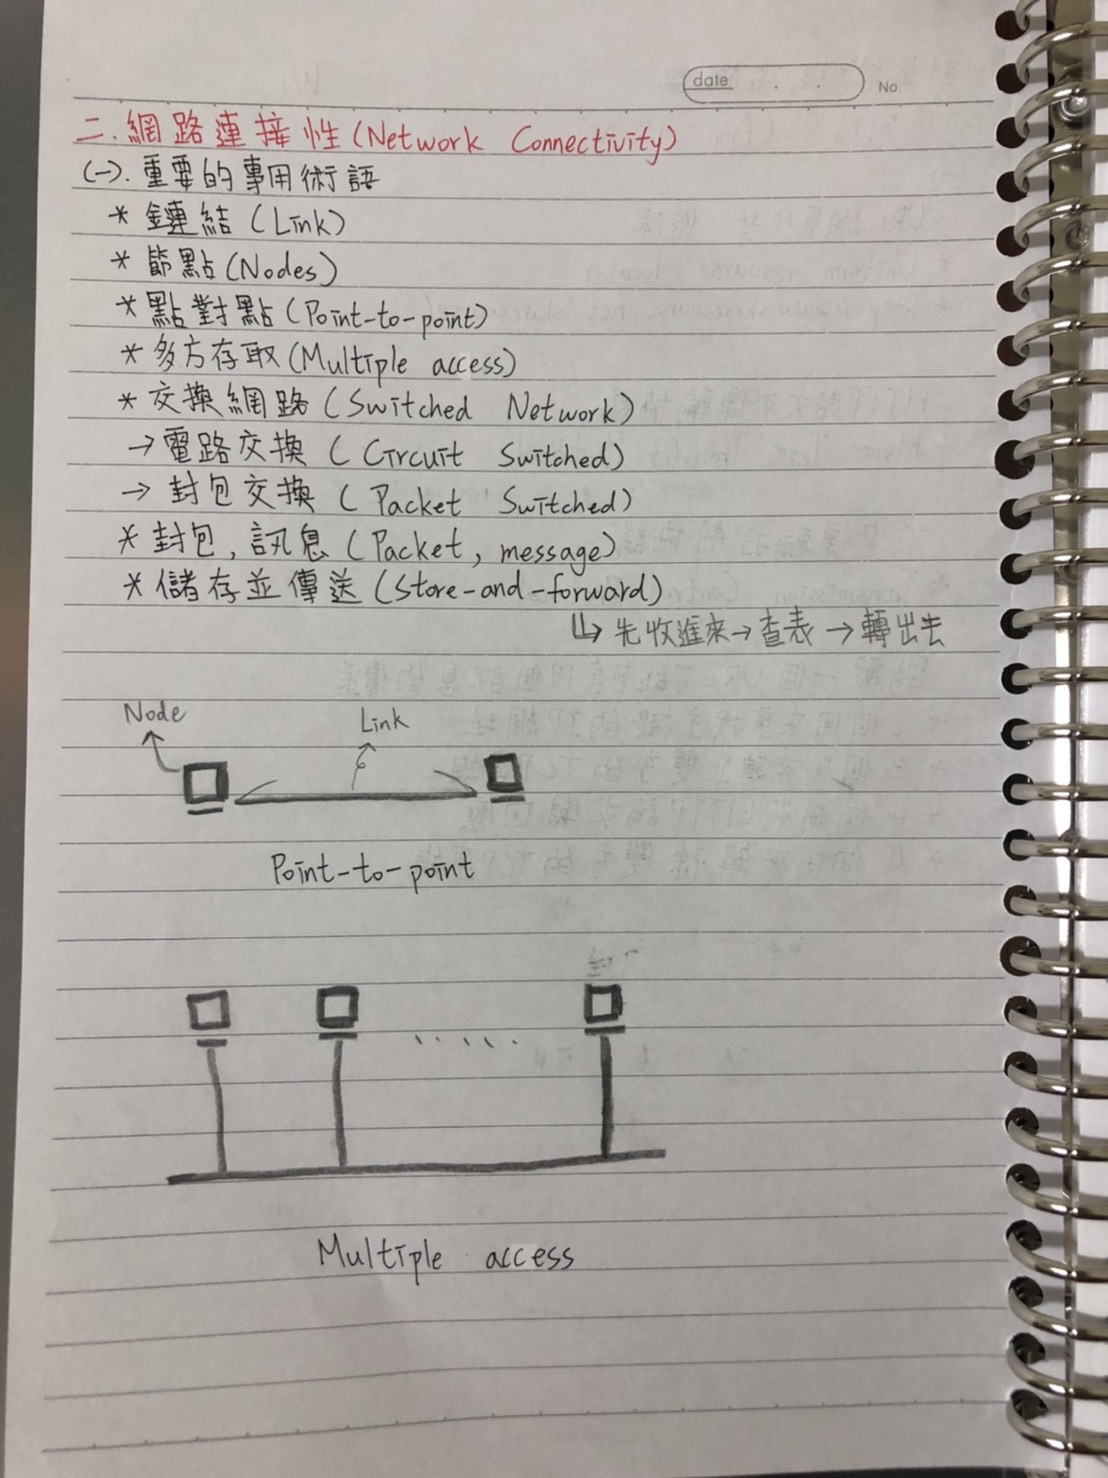 date . . No.
二.網路連接性(Network Connectivity)
(一).重要的專用術語
* 鏈連結(Link)
* 節點(Nodes)
* 點對點(Point-to-point)
* 多方存取(Multiple access)
* 交換網路(Switched Network)
→電路交換(Circuit Switched)
→封包交換(Packet Switched)
* 封包,訊息(Packet, message)
* 儲存並傳送(Store-and-forward)
↳先收進來→查表→轉出去
Node Link
Point-to-point
.....
Multiple access